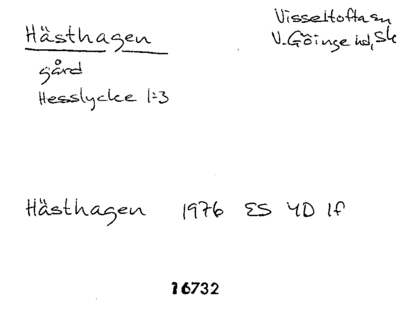 Hästhagen
Visseltofta sn
V. Göinge hd, Sk
gård
Hesslycke 1:3
Hästhagen 1976 ES 4D 1f
16732